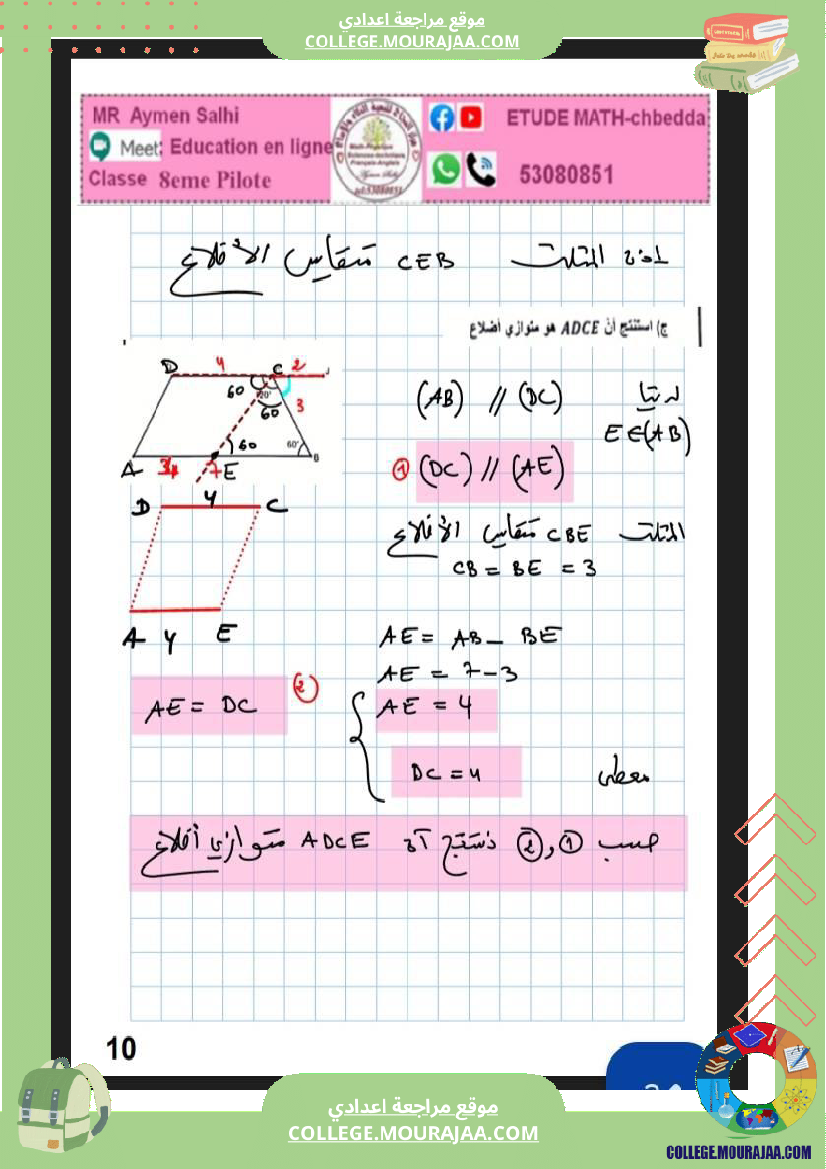 موقع مراجعة اعدادي
COLLEGE.MOURAJAA.COM
MR Aymen Salhi
Meet: Education en ligne
Classe 8eme Pilote
ETUDE MATH-chbedda
53080851
إذن المثلث CEB متقايس الأضلاع
ج) استنتج أنّ ADCE هو متوازي أضلاع
D 4 C 2
60 20° 60 3
60 60°
A 3 7 E B
لدينا (AB) // (DC)
E∈(AB)
① (DC) // (AE)
D 4 C
المثلث CBE متقايس الأضلاع
CB = BE = 3
A 4 E
AE = AB - BE
AE = 7-3
AE = 4
AE = DC ②
DC = 4 معطى
حسب ① و ② نستنتج أن ADCE متوازي أضلاع
10
موقع مراجعة اعدادي
COLLEGE.MOURAJAA.COM
COLLEGE.MOURAJAA.COM